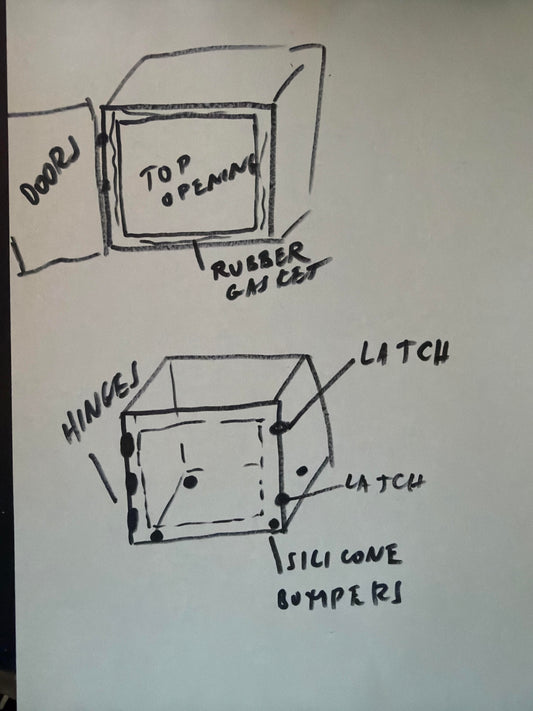 DOORS
TOP
OPENING
RUBBER
GASKET
HINGES
LATCH
LATCH
SILICONE
BUMPERS